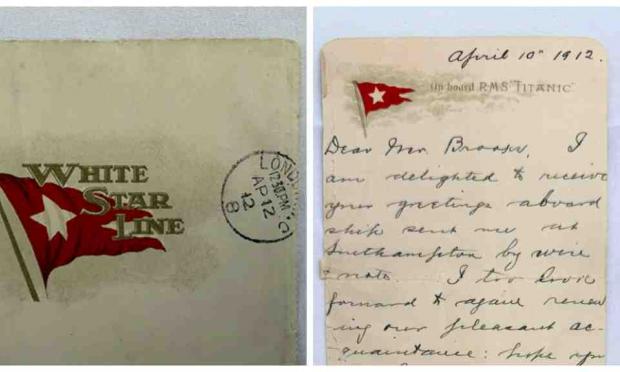 WHITE
STAR
LINE
LONDON
12.30PM
AP 12
12
8
April 10th 1912.
On board R.M.S. "TITANIC"
Dear Mr. I
am delighted to receive
your greetings aboard
ship sent me at
Southampton by wire
& note. I too
forward to again renew
ing our pleasant ac-
quaintance: hope you